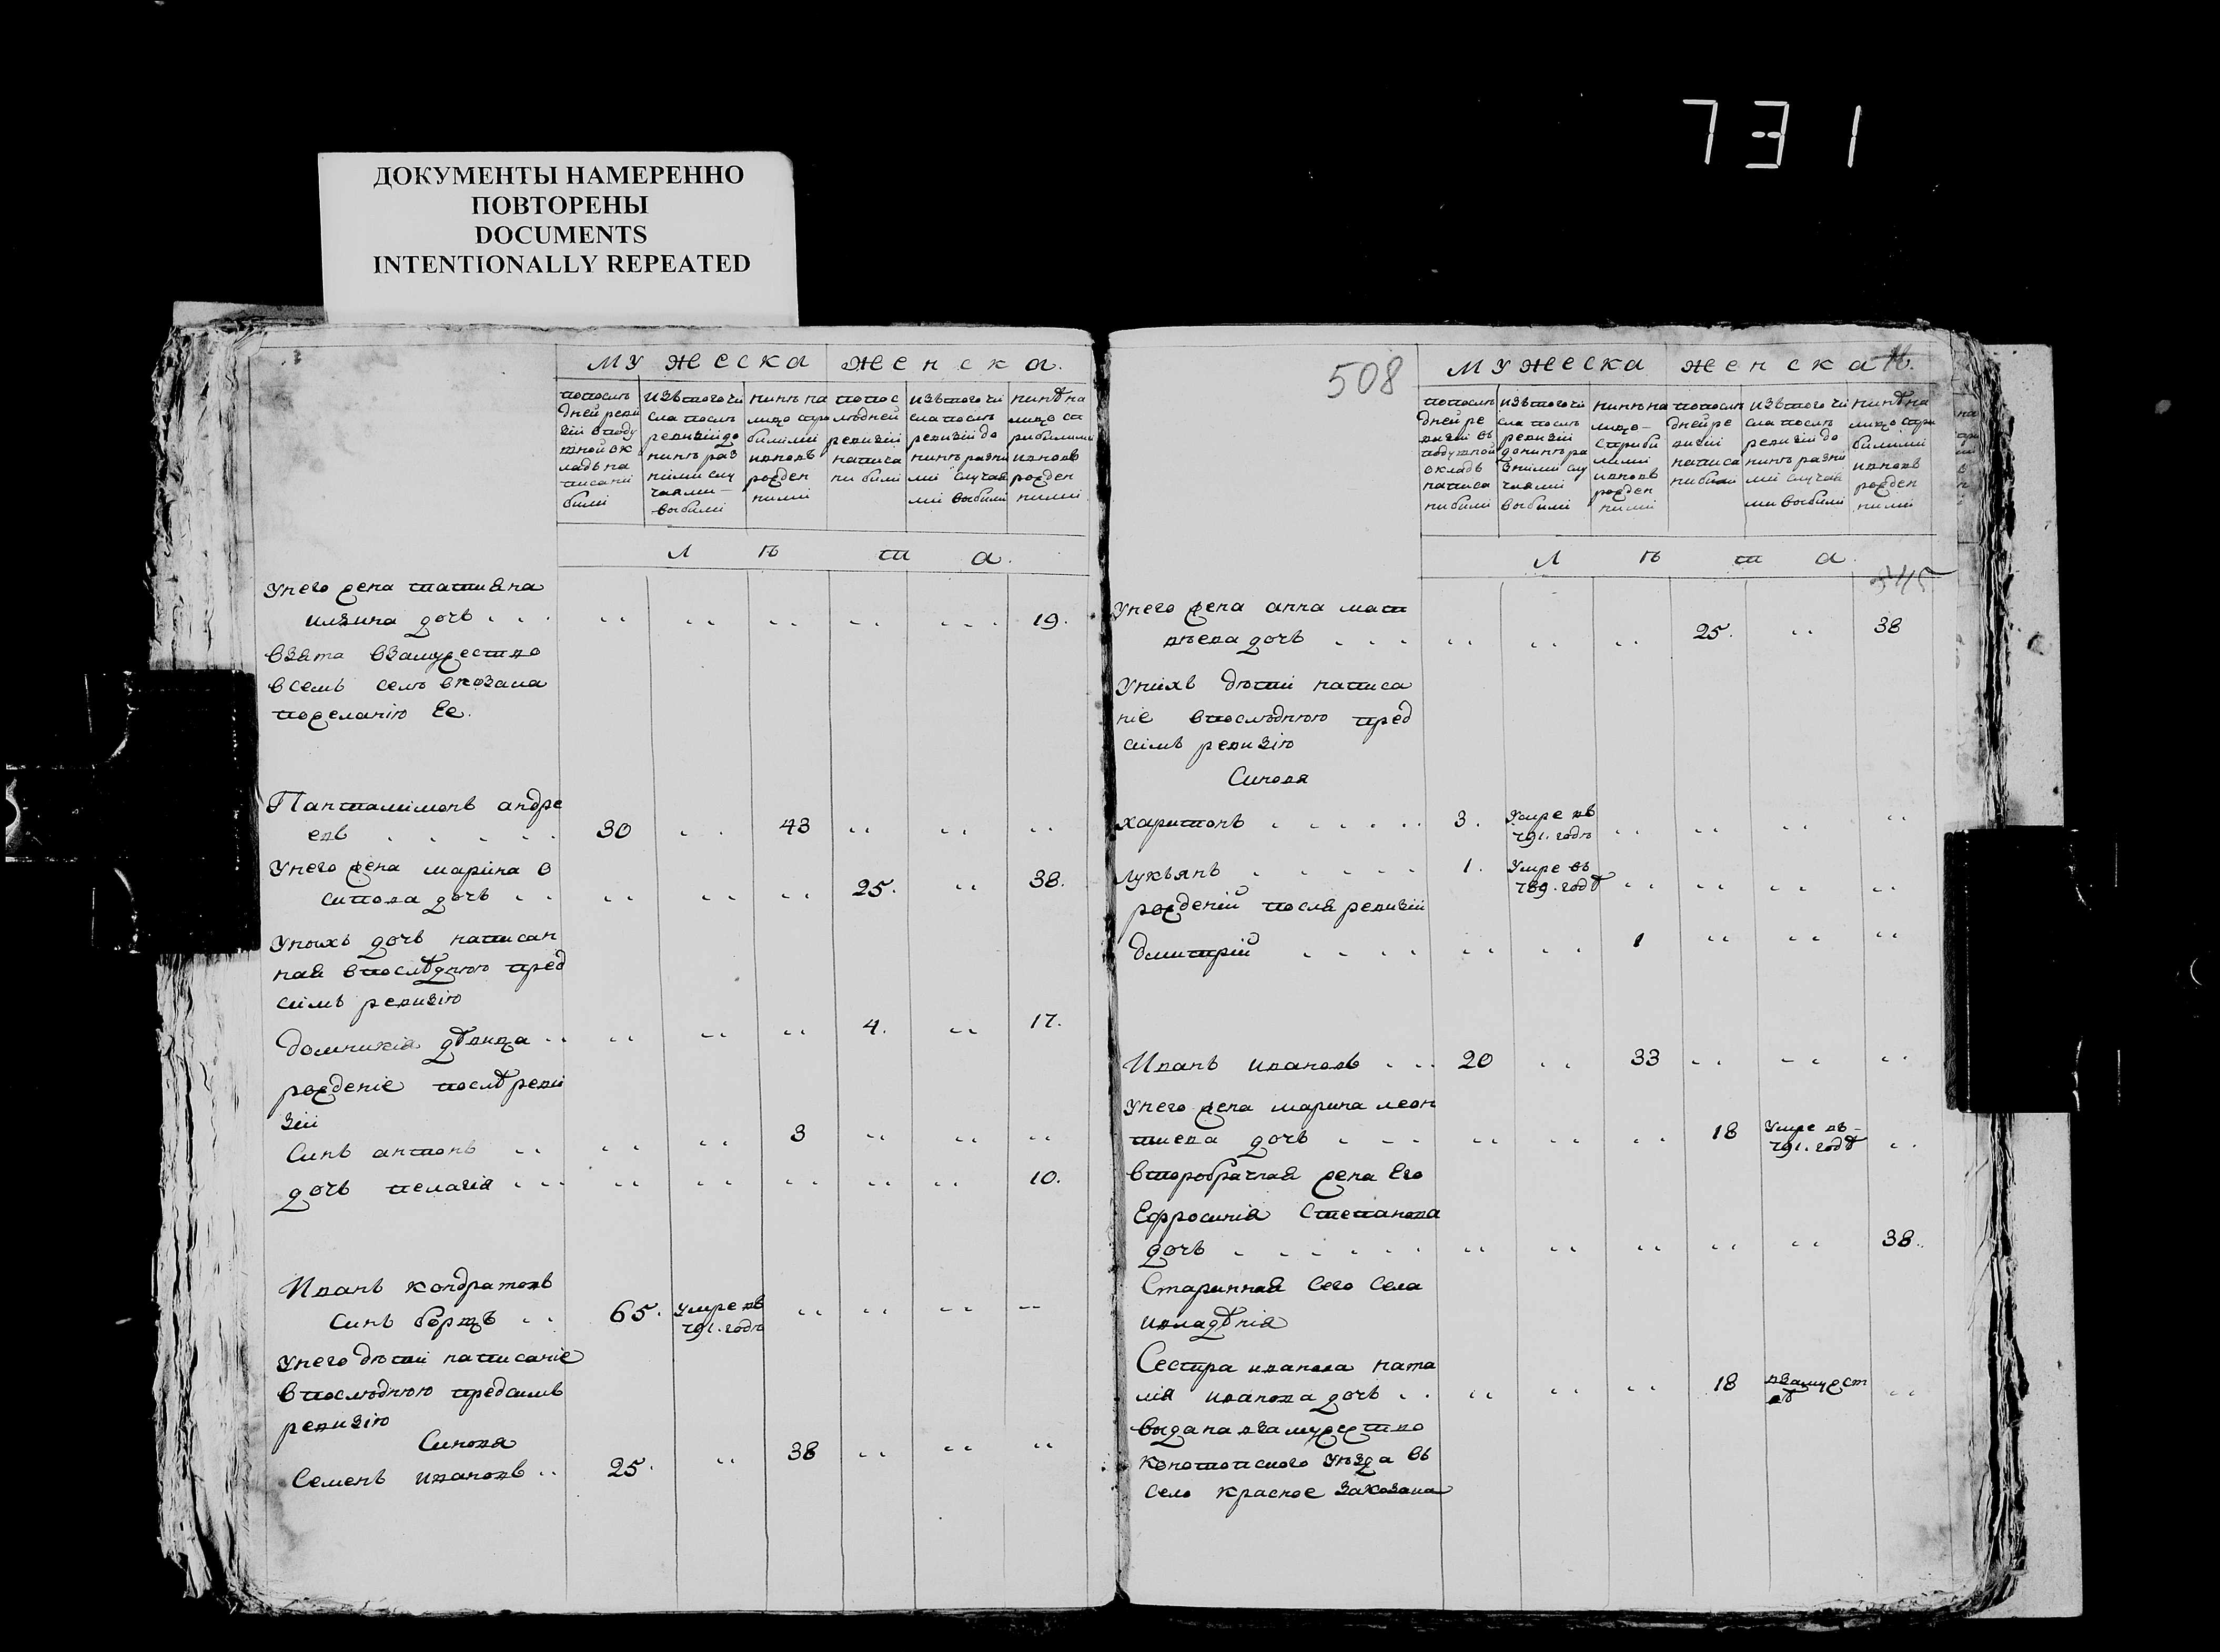 731
ДОКУМЕНТЫ НАМЕРЕННО
ПОВТОРЕНЫ
DOCUMENTS
INTENTIONALLY REPEATED
мужеска женска.
попослѣ дней реви зіи вподу шной ок ладъ на писани были
изътого чи сла послѣ ревизіи до нинѣ раз ними слу чаями выбили
нинѣ на лицо при былими ивновь рожден ними
попос лѣдней ревизіи написа ни были
изътого чи сла послѣ ревизіи до нинѣ разни ми случая ми выбили
нинѣ на лицо съ прибилими ивновь рожден ними
лѣта.
Унего жена татияна
илвина дочь . . . 19.
взята взамужество
всемъ селѣ вказала
пожеланію Ее.
Панталимонъ андре
евъ 30 43
Унего жена марина о
сипова дочь 25. 38.
Унихъ дочь написан
ная впослѣднюю пред
симъ ревизію
домникия дѣвица 4. 17.
рожденіе послѣ реви
зіи
Синъ антонъ 3
дочь пелагія 10.
Иванъ кондратовъ
Синъ борщъ 65. умре въ 791. годѣ
Унего дѣти написаніе
впослѣднюю предсимъ
ревизію
Синовя
Семенъ ивановъ 25. 38
508
мужеска женска
попослѣ дней ре визіи въ подушной окладъ написа ни били
изътого чи сла послѣ ревизіи донинѣ ра зними слу чаями выбили
нинѣ на лицо с приби лими ивновь рожден ними
попослѣ дней ре визіи написа ни били
изътого чи сла послѣ ревизіи до нинѣ разни ми случая ми выбили
нинѣ на лицо при билими ивновь рожден ними
лѣта.
Унего жена анна мат
вѣева дочь 25. 38
Унихъ дѣти написа
ніе впослѣднюю пред
симъ ревизію
Синовя
харитонъ 3. Умре въ 791. годѣ
лукьянъ 1. Умре въ 789. годѣ
рожденій посля ревизіи
дмитрій 1
Иванъ ивановъ 20 33
Унего жена марина леон
тиева дочь 18 Умре въ 791. годѣ
второбрачная жена Его
Ефросинія Степанова
дочь 38.
Старинная Сего Села
ивладѣнія
Сестра иванова ната
лія иванова дочь 18 взамужст вѣ
выдана взамужество
конотопского уѣзда въ
село красное за козака